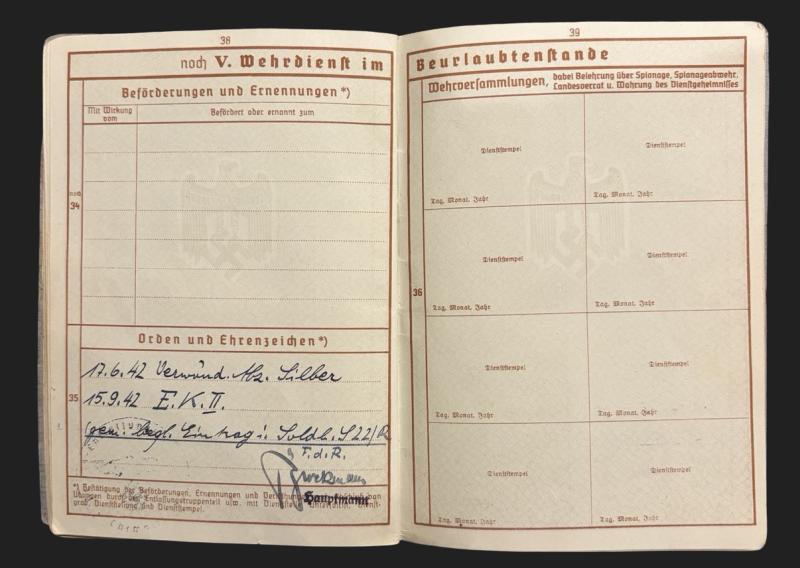 38
noch V. Wehrdienst im
Beförderungen und Ernennungen *)
Mit Wirkung vom
Befördert oder ernannt zum
noch 34
Orden und Ehrenzeichen *)
35
17.6.42 Verwund. Abz. Silber
15.9.42 E.K.II.
(gem. begl. Eintrag i. Soldb. S 22/
F.d.R.
Hauptmann
*) Bestätigung der Beförderungen, Ernennungen und
durch den Entlassungstruppenteil usw. mit Unterschrift, Dienst-
grad, Dienststellung und Dienststempel.
39
Beurlaubtenstande
Wehrversammlungen, dabei Belehrung über Spionage, Spionageabwehr,
Landesverrat u. Wahrung des Dienstgeheimnisses
Dienststempel Dienststempel
Tag, Monat, Jahr Tag, Monat, Jahr
Dienststempel Dienststempel
36
Tag, Monat, Jahr Tag, Monat, Jahr
Dienststempel Dienststempel
Tag, Monat, Jahr Tag, Monat, Jahr
Dienststempel Dienststempel
Tag, Monat, Jahr Tag, Monat, Jahr